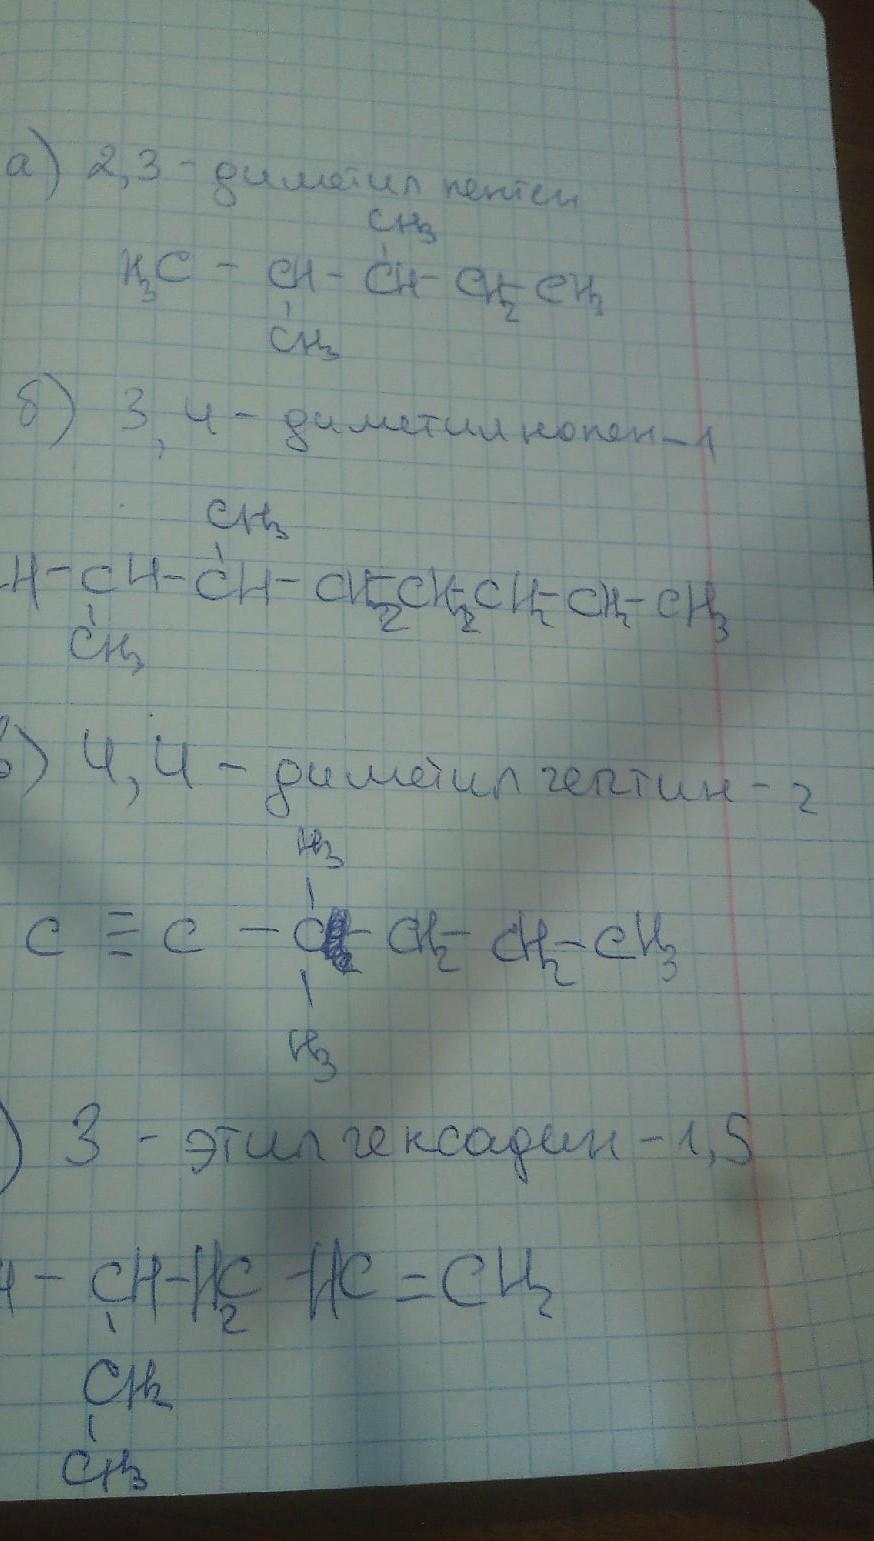 а) 2,3 - диметил пентан
CH3
H3C - CH - CH - CH2 - CH3
CH3
б) 3,4 - диметилнонен-1
CH3
H - CH - CH - CH2 - CH2 - CH2 - CH2 - CH3
CH3
в) 4,4 - диметил гептин - 2
H3
C ≡ C - C - CH2 - CH2 - CH3
H3
) 3 - этилгексадиен - 1,5
- CH - H2C - HC = CH2
CH2
CH3